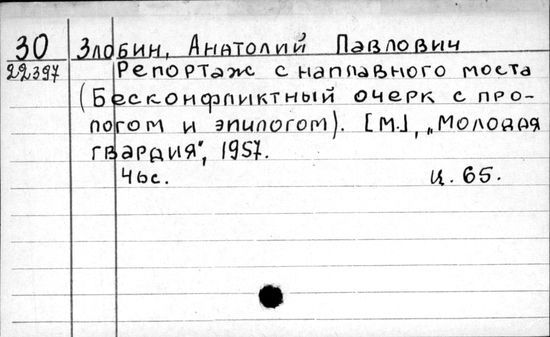 30 Злобин, Анатолий Павлович
22397 Репортаж с наплавного моста
(Бесконфликтный очерк с про-
логом и эпилогом). [М.], „Молодая
гвардия", 1957.
46с. ц. 65.